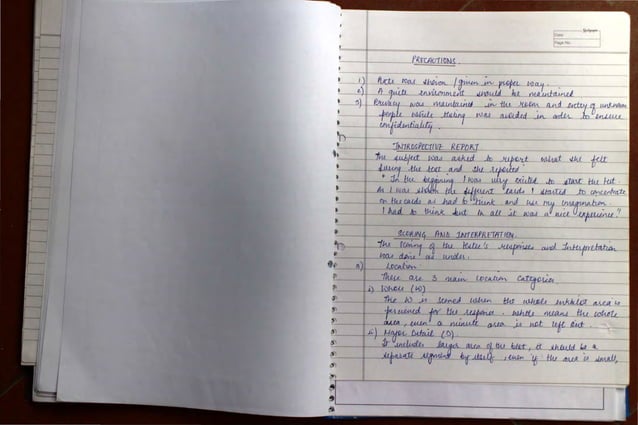 Date:
Page No.
PRECAUTIONS.
1) was shown / given in proper way.
2) A quite environment should be maintained
3) Privacy was maintained in the room and entry of unknown
people while testing was avoided in order to ensure
confidentiality.
INTROSPECTIVE REPORT
The subject was asked to report what she felt
during the test and she reported
" In the beginning I was very excited to start the test.
As I was shown the different cards I started to concentrate
on the cards as had to think and use my imagination.
I had to think but in all it was a nice experience."
SCORING AND INTERPRETATION.
The scoring of the responses and Interpretation
was done as under.
a) Location
There are 3 main location categories
i) Whole (W)
The W is scored when the whole inkblot area is
perceived for the response. whole means the whole
area, even a minute area is not left out.
ii) Major Detail (D)
It includes larger area of the blot, it should be a
separate segment by itself, even if the area is small,